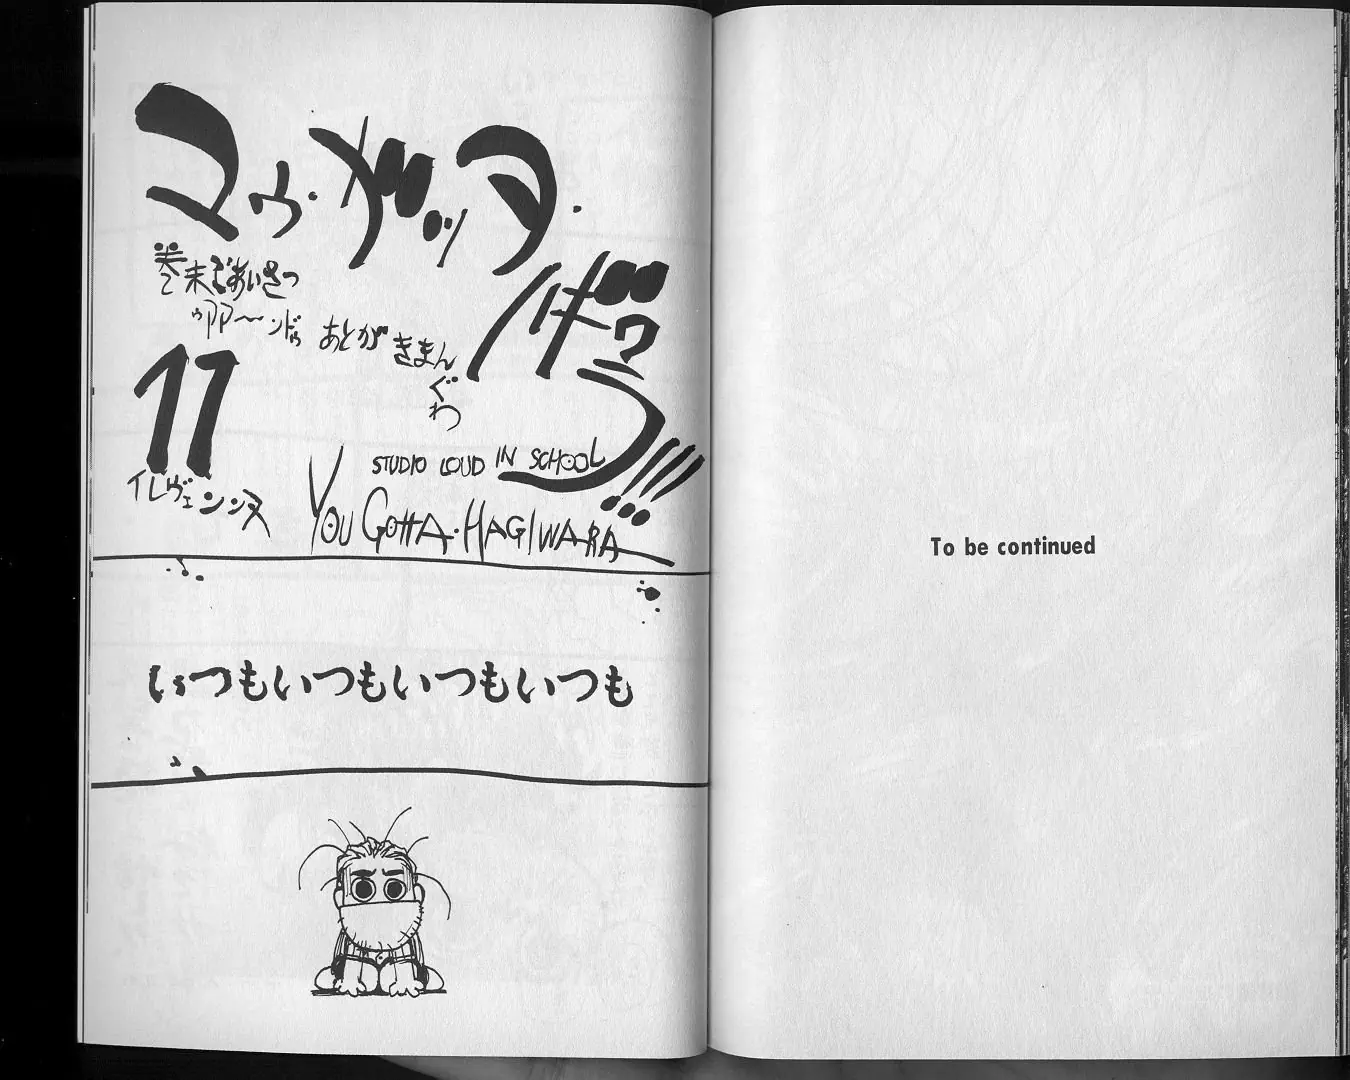 マゥ・ガッデ・
ハギワラ!!!
巻末ごあいさつ
ゥアア〜ンドゥ あとがきまんぐわ
11
イレヴェンンヌ
STUDIO LOUD IN SCHOOL
YOU GOTTA・HAGIWARA
いつもいつもいつもいつも
To be continued